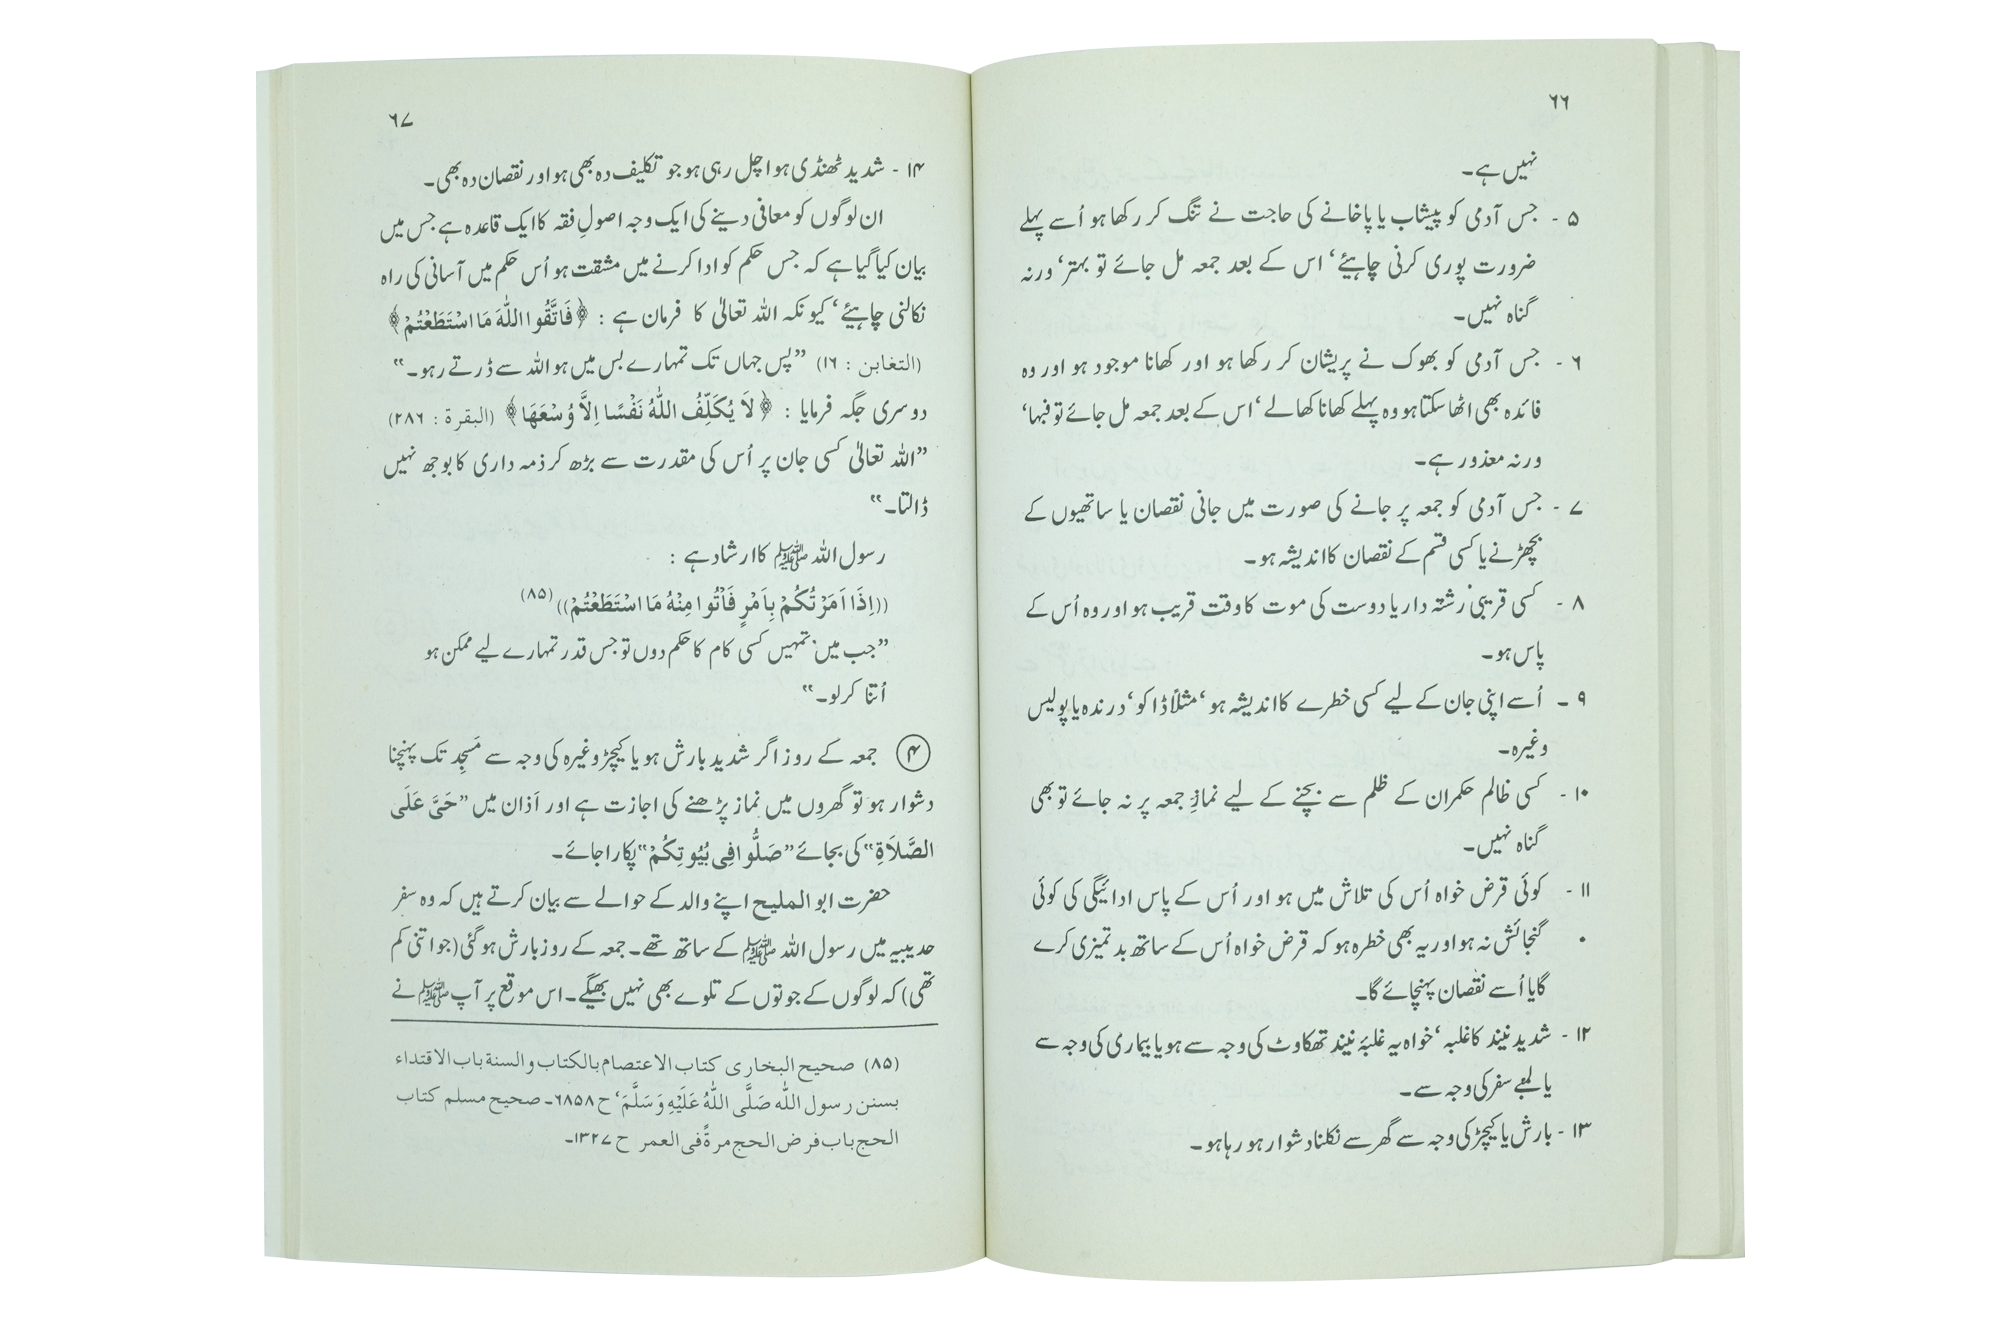 ۶۶
نہیں ہے۔
۵ - جس آدمی کو پیشاب یا پاخانے کی حاجت نے تنگ کر رکھا ہو اُسے پہلے
ضرورت پوری کرنی چاہیئے‘ اس کے بعد جمعہ مل جائے تو بہتر‘ ورنہ
گناہ نہیں۔
۶ - جس آدمی کو بھوک نے پریشان کر رکھا ہو اور کھانا موجود ہو اور وہ
فائدہ بھی اٹھا سکتا ہو وہ پہلے کھانا کھا لے‘ اس کے بعد جمعہ مل جائے تو فبہا‘
ورنہ معذور ہے۔
۷ - جس آدمی کو جمعہ پر جانے کی صورت میں جانی نقصان یا ساتھیوں کے
بچھڑنے یا کسی قسم کے نقصان کا اندیشہ ہو۔
۸ - کسی قریبی رشتہ دار یا دوست کی موت کا وقت قریب ہو اور وہ اُس کے
پاس ہو۔
۹ - اُسے اپنی جان کے لیے کسی خطرے کا اندیشہ ہو‘ مثلاً ڈاکو‘ درندہ یا پولیس
وغیرہ۔
۱۰ - کسی ظالم حکمران کے ظلم سے بچنے کے لیے نمازِ جمعہ پر نہ جائے تو بھی
گناہ نہیں۔
۱۱ - کوئی قرض خواہ اُس کی تلاش میں ہو اور اُس کے پاس ادائیگی کی کوئی
گنجائش نہ ہو اور یہ بھی خطرہ ہو کہ قرض خواہ اُس کے ساتھ بد تمیزی کرے
گا یا اُسے نقصان پہنچائے گا۔
۱۲ - شدید نیند کا غلبہ‘ خواہ یہ غلبۂ نیند تھکاوٹ کی وجہ سے ہو یا بیماری کی وجہ سے
یا لمبے سفر کی وجہ سے۔
۱۳ - بارش یا کیچڑ کی وجہ سے گھر سے نکلنا دشوار ہو رہا ہو۔
۶۷
۱۴ - شدید ٹھنڈی ہوا چل رہی ہو جو تکلیف دہ بھی ہو اور نقصان دہ بھی۔
ان لوگوں کو معافی دینے کی ایک وجہ اصولِ فقہ کا ایک قاعدہ ہے جس میں
بیان کیا گیا ہے کہ جس حکم کو ادا کرنے میں مشقت ہو اُس حکم میں آسانی کی راہ
نکالنی چاہیئے‘ کیونکہ اللہ تعالیٰ کا فرمان ہے : ﴿فَاتَّقُوا اللّٰهَ مَا اسْتَطَعْتُمْ﴾
(التغابن : ۱۶) ”پس جہاں تک تمہارے بس میں ہو اللہ سے ڈرتے رہو۔“
دوسری جگہ فرمایا : ﴿لَا يُكَلِّفُ اللّٰهُ نَفْسًا اِلَّا وُسْعَهَا﴾ (البقرة : ۲۸۶)
”اللہ تعالیٰ کسی جان پر اُس کی مقدرت سے بڑھ کر ذمہ داری کا بوجھ نہیں
ڈالتا۔“
رسول اللہ ﷺ کا ارشاد ہے :
((اِذَا اَمَرْتُكُمْ بِاَمْرٍ فَأْتُوا مِنْهُ مَا اسْتَطَعْتُمْ)) (۸۵)
”جب میں تمہیں کسی کام کا حکم دوں تو جس قدر تمہارے لیے ممکن ہو
اُتنا کر لو۔“
۴ جمعہ کے روز اگر شدید بارش ہو یا کیچڑ وغیرہ کی وجہ سے مَسجِد تک پہنچنا
دشوار ہو تو گھروں میں نماز پڑھنے کی اجازت ہے اور اَذان میں ”حَیَّ عَلَی
الصَّلَاةِ“ کی بجائے ”صَلُّوا فِی بُيُوتِكُمْ“ پکارا جائے۔
حضرت ابو الملیح اپنے والد کے حوالے سے بیان کرتے ہیں کہ وہ سفر
حدیبیہ میں رسول اللہ ﷺ کے ساتھ تھے۔ جمعہ کے روز بارش ہو گئی (جو اتنی کم
تھی) کہ لوگوں کے جوتوں کے تلوے بھی نہیں بھیگے۔ اس موقع پر آپ ﷺ نے
(۸۵) صحیح البخاری کتاب الاعتصام بالکتاب والسنة باب الاقتداء
بسنن رسول اللّٰه صَلَّى اللّٰهُ عَلَيْهِ وَسَلَّمَ‘ ح ۶۸۵۸۔ صحیح مسلم کتاب
الحج باب فرض الحج مرةً فی العمر ح ۱۳۲۷۔